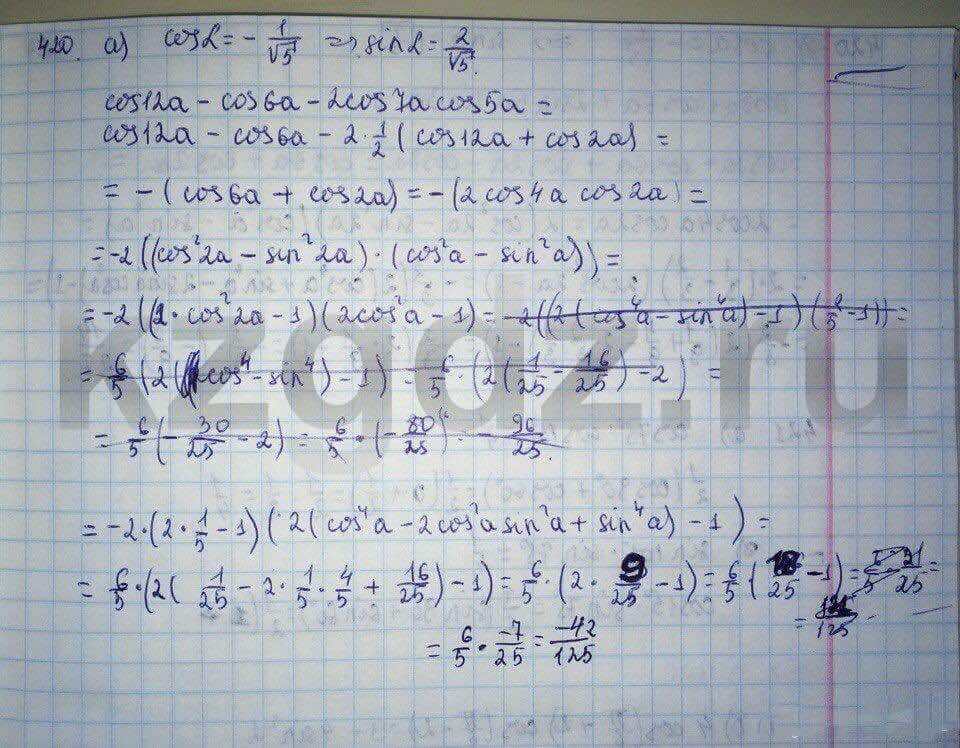 420. а) cosα = -1/√5 => sinα = 2/√5.
cos12a - cos6a - 2cos7a cos5a =
cos12a - cos6a - 2·1/2 (cos12a + cos2a) =
= -(cos6a + cos2a) = -(2cos4a cos2a) =
= -2((cos²2a - sin²2a)·(cos²a - sin²a)) =
= -2((2·cos²2a - 1)(2cos²a - 1) = -2((2(cos⁴a - sin⁴a) - 1)(2/5 - 1)) =
= 6/5 (2(cos⁴ - sin⁴) - 1) = 6/5 · (2(1/25 - 16/25) - 2) =
= 6/5 (-30/25 - 2) = 6/5 · (-80/25) = -96/25.
= -2·(2·1/5 - 1)(2(cos⁴a - 2cos²a sin²a + sin⁴a) - 1) =
= 6/5 · (2(1/25 - 2·1/5·4/5 + 16/25) - 1) = 6/5 · (2· 9/25 - 1) = 6/5 (18/25 - 1) =
= 6/5 · -7/25 = -42/125
kzgdz.ru